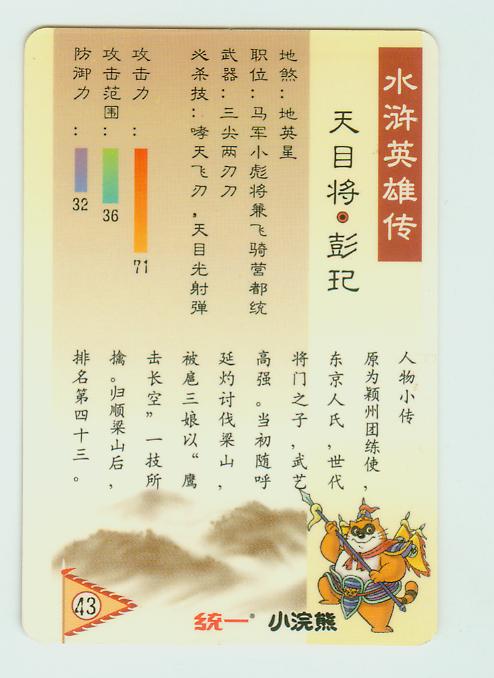 水浒英雄传
天目将●彭玘
地煞：地英星
职位：马军小彪将兼飞骑营都统
武器：三尖两刃刀
必杀技：哮天飞刃，天目光射弹
攻击力：
71
攻击范围：
36
防御力：
32
人物小传
原为颖州团练使，
东京人氏，世代
将门之子，武艺
高强。当初随呼
延灼讨伐梁山，
被扈三娘以“鹰
击长空”一技所
擒。归顺梁山后，
排名第四十三。
43
统一® 小浣熊